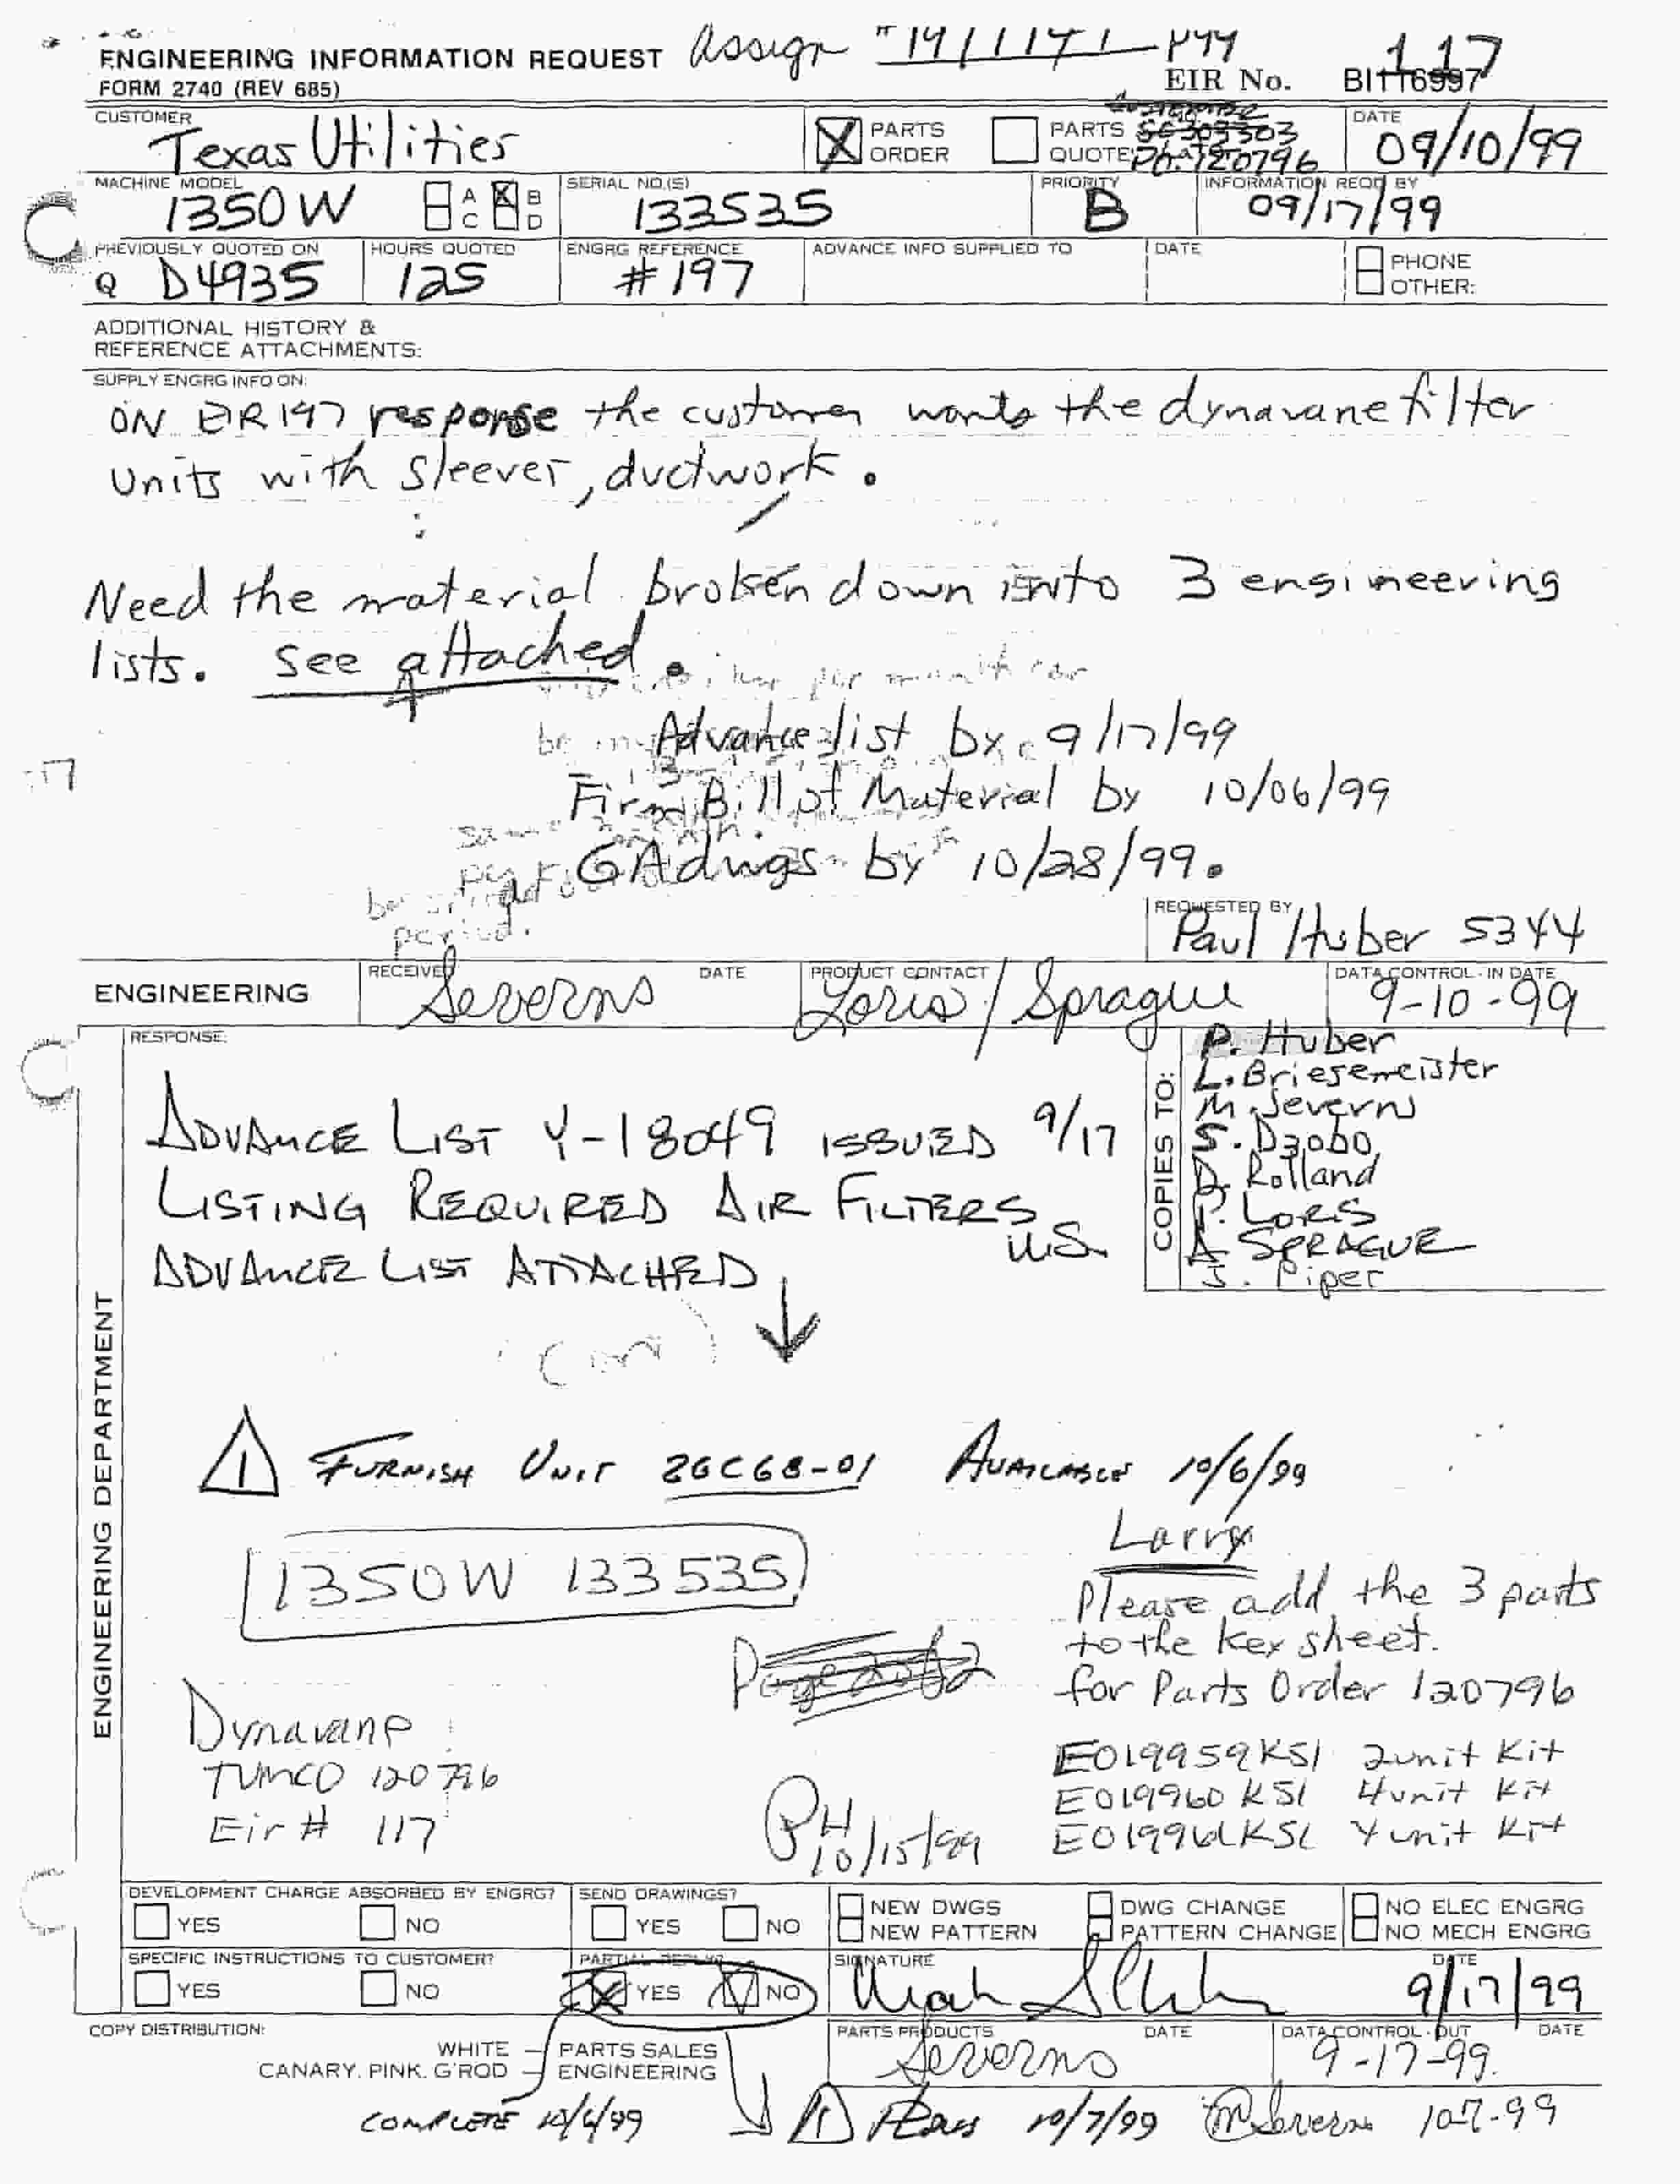 ENGINEERING INFORMATION REQUEST Assign
FORM 2740 (REV 685)
EIR No. 117
CUSTOMER Texas Utilities
PARTS ORDER
PARTS QUOTE P.O. 120796
DATE 09/10/99
MACHINE MODEL 1350W A B C D
SERIAL NO.(S) 133535
PRIORITY B
INFORMATION REQD BY 09/17/99
PREVIOUSLY QUOTED ON Q D4935
HOURS QUOTED 125
ENGRG REFERENCE #197
ADVANCE INFO SUPPLIED TO
DATE
PHONE
OTHER:
ADDITIONAL HISTORY &
REFERENCE ATTACHMENTS:
SUPPLY ENGRG INFO ON:
ON EIR 197 response the customer wants the dynavane filter
units with sleever, ductwork.
Need the material broken down into 3 engineering
lists. See attached.
Advance list by 9/17/99
Firm Bill of Material by 10/06/99
GA dwgs by 10/28/99.
REQUESTED BY
Paul Huber 5344
ENGINEERING
RECEIVED Severns DATE
PRODUCT CONTACT Loris / Sprague
DATA CONTROL - IN DATE 9-10-99
ENGINEERING DEPARTMENT
RESPONSE:
ADVANCE LIST Y-18049 ISSUED 9/17
LISTING REQUIRED AIR FILTERS
U.S.
ADVANCE LIST ATTACHED
COPIES TO:
P. Huber
L. Briesemeister
M. Severns
S. Dzobo
D. Rolland
P. LORIS
A SPRAGUE
J. Piper
1 FURNISH UNIT 26C68-01 AVAILABLE 10/6/99
1350W 133535
Larry
Please add the 3 parts
to the key sheet.
for Parts Order 120796
Page 2 of 2
E019959KS1 2unit Kit
E019960KS1 4unit Kit
E019961KS1 4unit Kit
Dynavane
TUMCO 120796
Eir # 117
PH
10/15/99
DEVELOPMENT CHARGE ABSORBED BY ENGRG?
YES NO
SEND DRAWINGS?
YES NO
NEW DWGS
NEW PATTERN
DWG CHANGE
PATTERN CHANGE
NO ELEC ENGRG
NO MECH ENGRG
SPECIFIC INSTRUCTIONS TO CUSTOMER?
YES NO
PARTIAL REPLY?
YES NO
SIGNATURE
DATE 9/17/99
COPY DISTRIBUTION:
WHITE – PARTS SALES
CANARY, PINK, G'ROD – ENGINEERING
PARTS PRODUCTS Severns DATE
DATA CONTROL - OUT DATE 9-17-99.
COMPLETE 10/6/99
1 10/7/99 M Severns 10-7-99